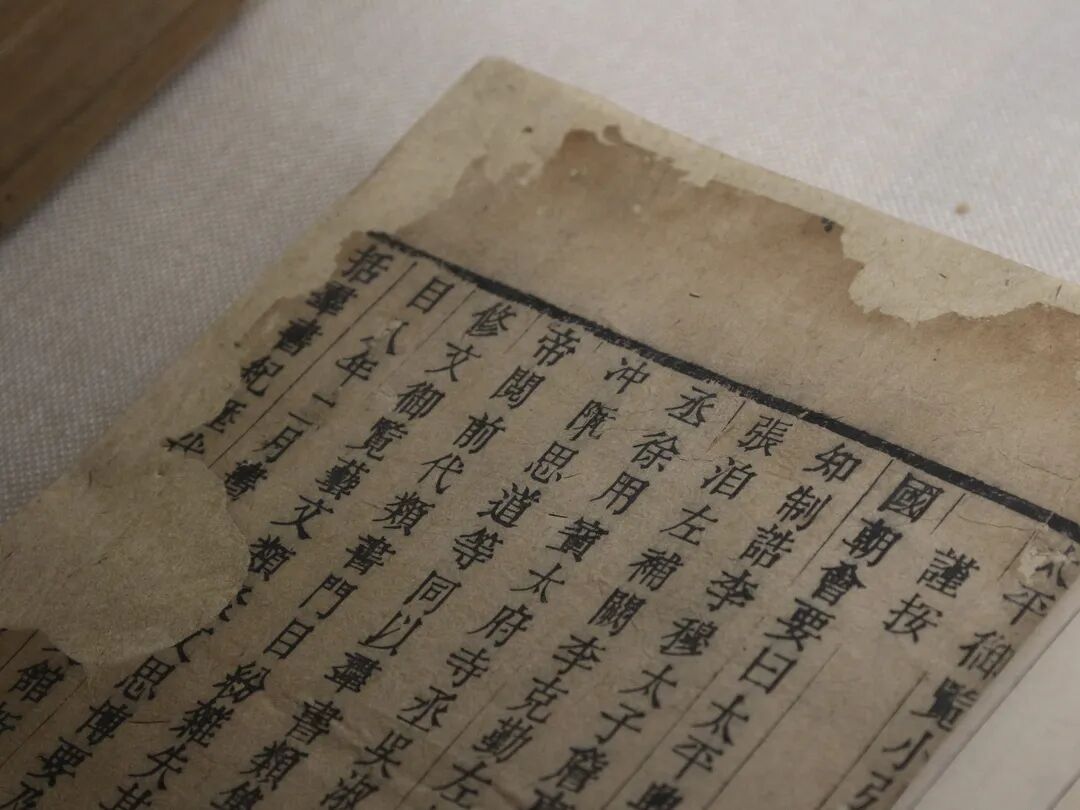 太平御覽小引
謹按
國朝會要曰太平興
知制誥李穆太子詹事
張洎左補闕李克勤左
丞徐用賓太府寺丞吳淑
沖阮思道等同以羣書類集
帝閱前代類書門目紛雜失其
修文御覽藝文類文思博要及
目八年二月書館
括羣書紀